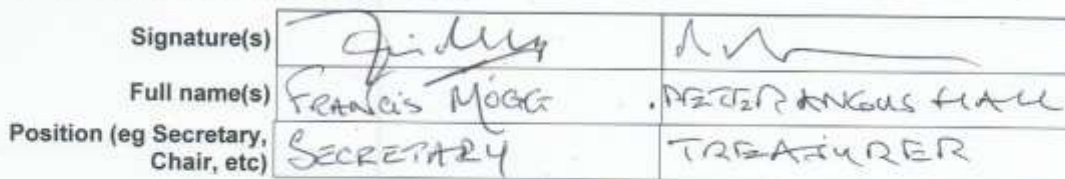 Signature(s)
Full name(s) FRANCIS MOGG PETER ANGUS HALL
Position (eg Secretary, SECRETARY TREASURER
Chair, etc)